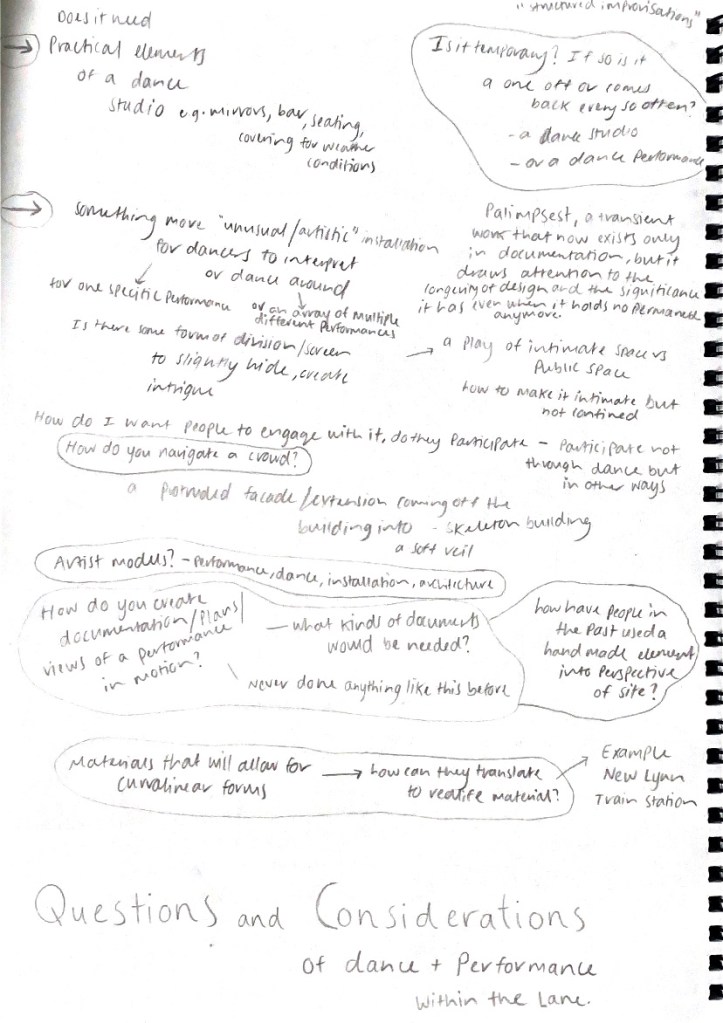 "structured improvisations"
Does it need
Practical elements
of a dance
studio e.g. mirrors, bar, seating,
covering for weather
conditions
Is it temporary? If so is it
a one off or comes
back every so often?
- a dance studio
- or a dance performance
something more "unusual/artistic" installation
for dancers to interpret
or dance around
for one specific performance
or an array of multiple
different performances
Palimpsest, a transient
work that now exists only
in documentation, but it
draws attention to the
longevity of design and the significance
it has even when it holds no permanence
anymore.
Is there some form of division/screen
to slightly hide, create
intrigue
a play of intimate space vs
public space
how to make it intimate but
not confined
How do I want people to engage with it, do they participate - participate not
through dance but
in other ways
How do you navigate a crowd?
a protruded facade/extension coming off the
building into - skeleton building
a soft veil
Artist models? - performance, dance, installation, architecture
How do you create
documentation/plans/
views of a performance
in motion?
- what kinds of documents
would be needed?
Never done anything like this before
how have people in
the past used a
hand made element
into perspective
of site?
Materials that will allow for
curvalinear forms
how can they translate
to realife material?
Example
New Lynn
Train station
Questions and Considerations
of dance + Performance
within the Lane.